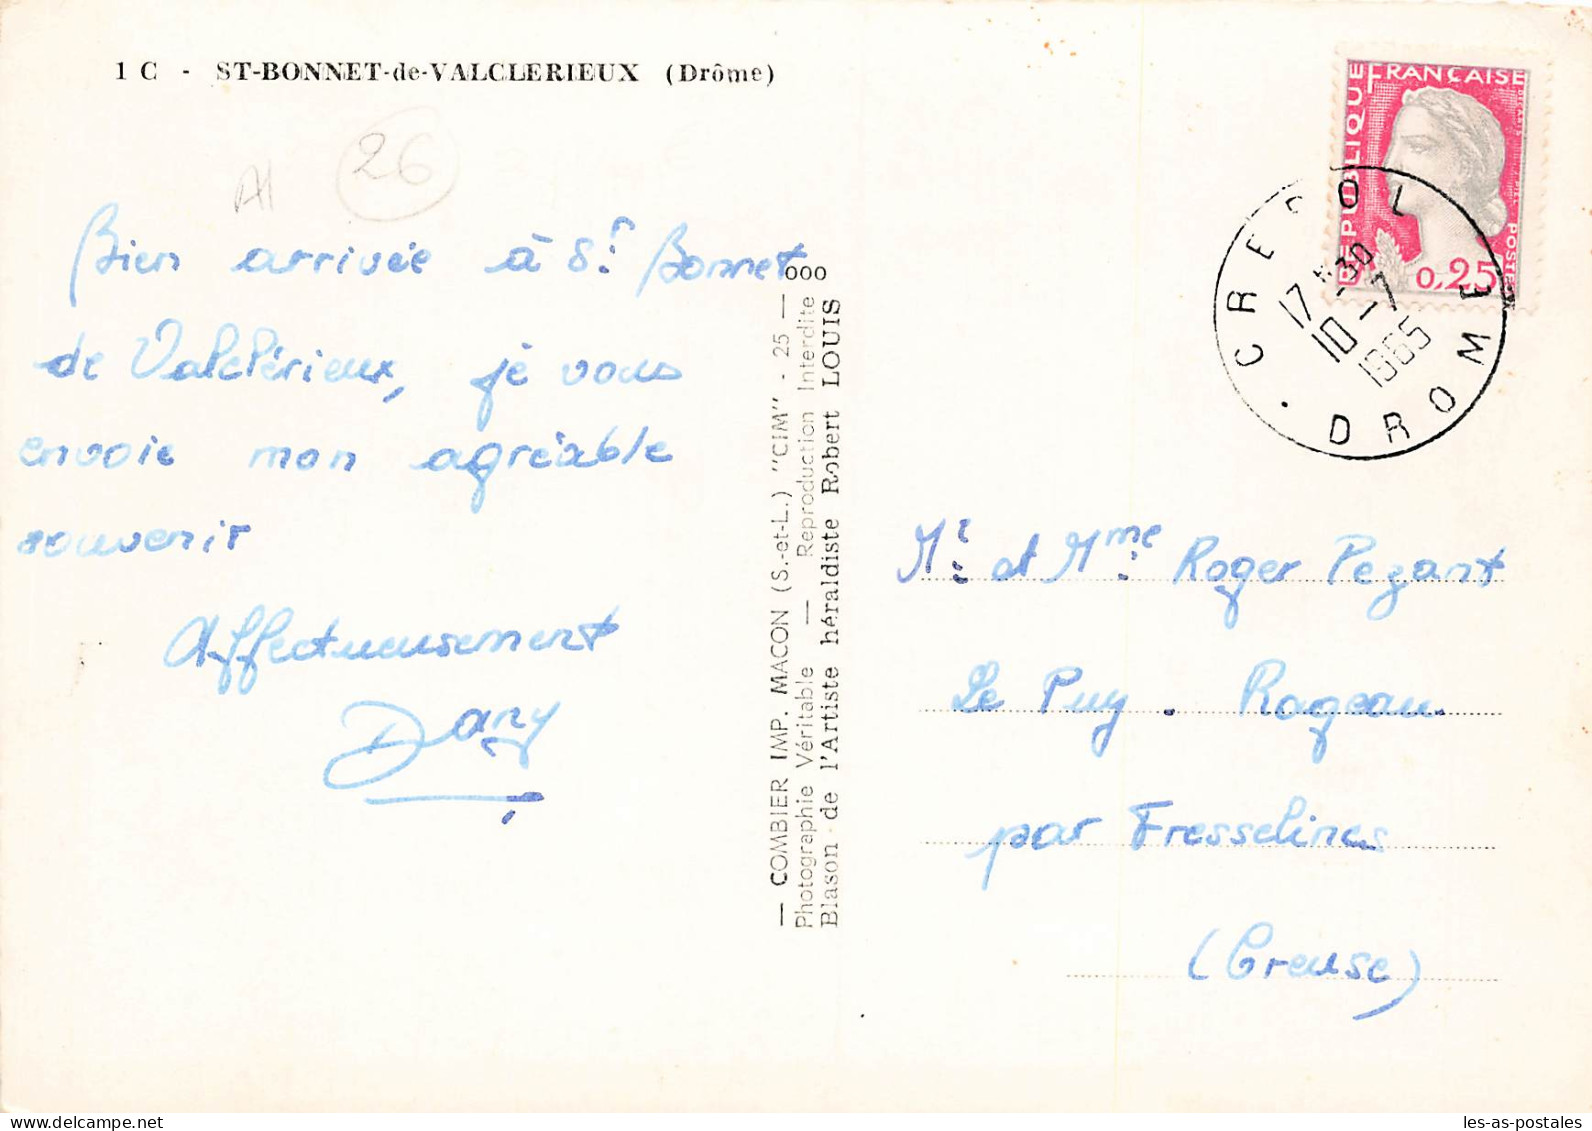 1 C - ST-BONNET-de-VALCLERIEUX (Drôme)
A1
26
Bien arrivée à St. Bonnet
de Valclérieux, je vous
envoie mon agréable
souvenir
Affectueusement
Dany
— COMBIER IMP. MACON (S.-et-L.) "CIM" - 25 — 000
Photographie Véritable — Reproduction Interdite
Blason de l'Artiste héraldiste Robert LOUIS
RÉPUBLIQUE FRANÇAISE
POSTES
0,25
CREPOL
17 H 30
10 - 7
1965
DROME
Mr. et Mme. Roger Pezant
Le Puy. Rageau
par Fresselines
(Creuse)
les-as-postales